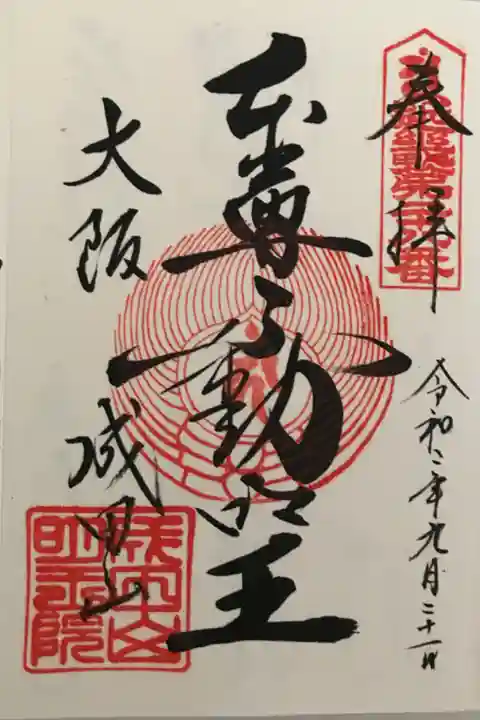 奉拝
令和二年九月二十一日
本尊不動明王
大阪 成田山
成田山
明王院